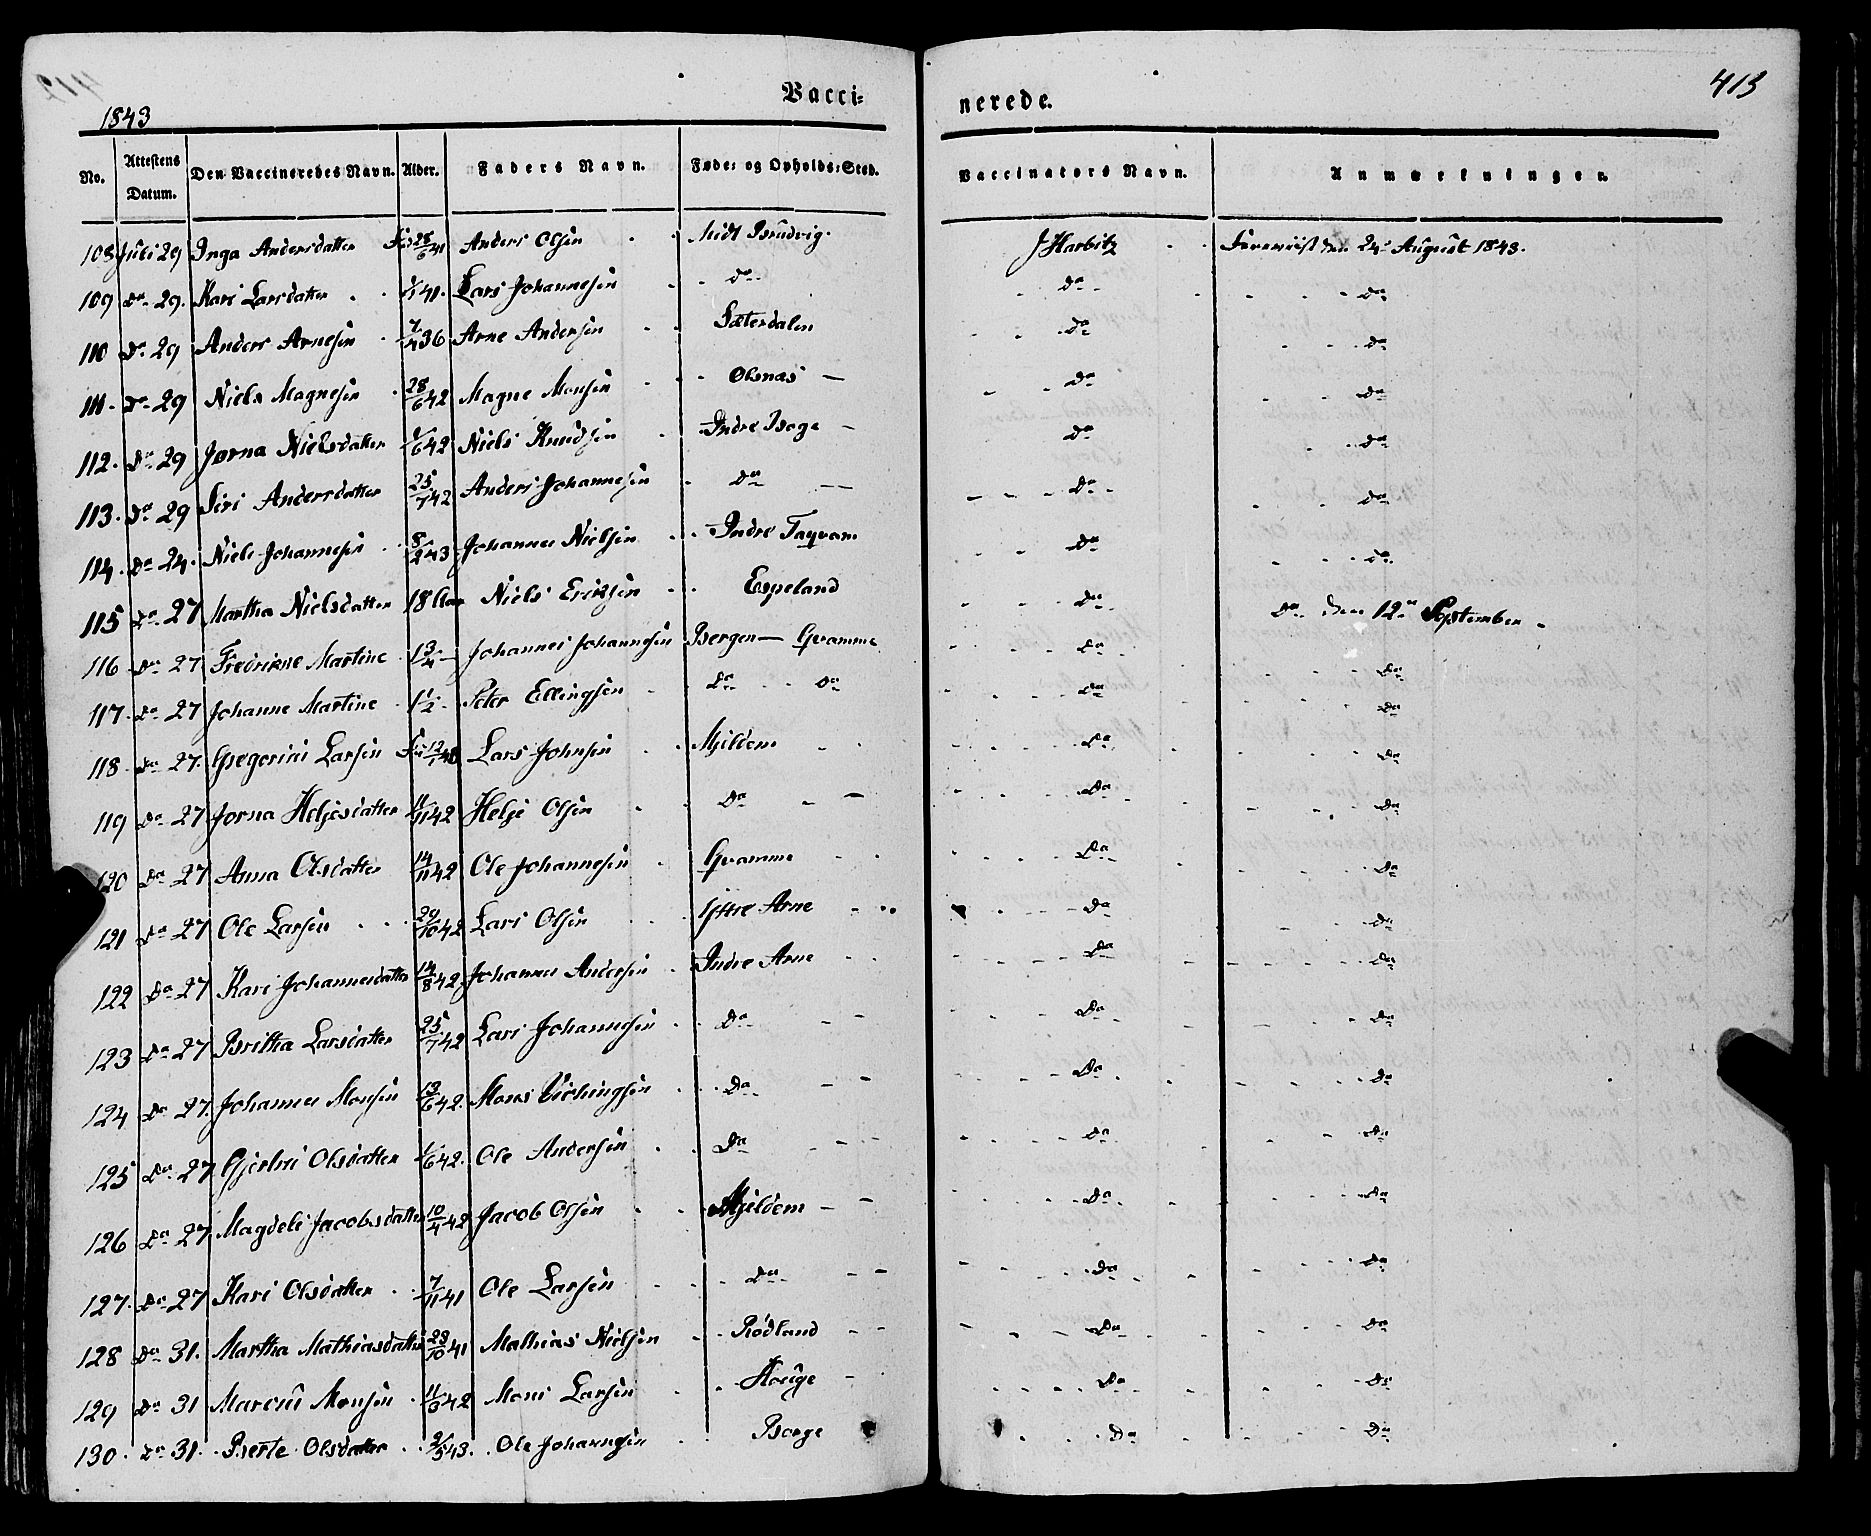 413
1843
Vacci= nerede.
No. Attestens Datum. Den Vaccineredes Navn. Alder. Faders Navn. Føde= og Opholds=Sted. Vaccinators Navn. Anmærkninger.
108 Juli 29 Inga Andersdatter 28/6 41 Anders Olsen Midt Bradvig J Harbitz Foreviist den 24 August 1843.
109 Do 29. Kari Larsdatter 1/1 41. Lars Johannesen Do Do Do
110 Do 29 Anders Arnesen 7/4 36 Arne Andersen Sæterdalen Do Do
111. Do 29 Niels Magnesen 28/6 42 Magne Monsen Olsnas Do Do
112. Do 29 Jorna Nielsdatter 1/6 42 Niels Knudsen Indre Borge Do Do
113. Do 29 Siri Andersdatter 25/7 42 Anders Johannesen Do Do Do
114. Do 24. Niels Johannesen 8/2 43 Johannes Nielsen Indre Taqvam Do Do
115 Do 27 Martha Nielsdatter 18 Niels Eriksen Espeland Do Do den 12te September
116 Do 27 Fredrikne Martine 1 3/4 Johannes Johannesen Bergen — Gramme Do Do
117. Do 27 Johanne Martine 1 1/2 Peter Ellingsen Do Do Do Do
118 Do 27. Gregorius Larsen Lars Johnsen Mjeldem Do Do
119 Do 27 Jorna Heljesdatter 11/11 42 Helje Olsen Do Do Do
120 Do 27 Anna Olsdatter 14/11 42 Ole Johannesen Gramme Do Do
121 Do 27 Ole Larsen 29/10 42 Lars Olsen Yttre Arne Do Do
122 Do 27 Kari Johannesdatter 14/8 42 Johannes Andersen Indre Arne Do Do
123 Do 27 Britha Larsdatter 25/7 42 Lars Johannesen Do Do Do
124 Do 27. Johannes Monsen 13/6 42. Mons Vichingsen Do Do Do
125 Do 27 Gjertrui Olsdatter 1/6 42. Ole Andersen Do Do Do
126 Do 27 Magdeli Jacobsdatter 10/4 42 Jacob Olsen Mjeldem Do Do
127. Do 27 Kari Olsdatter 7/11 41 Ole Larsen Do Do Do
128 Do 31. Martha Mathiasdatter 23/10 41 Mathias Nielsen Rödland Do Do
129 Do 31 Marcus Monsen 11/6 42 Mons Larsen Houge Do Do
130. Do 31. Berte Olsdatter 2/5 43. Ole Johannesen Borge Do Do